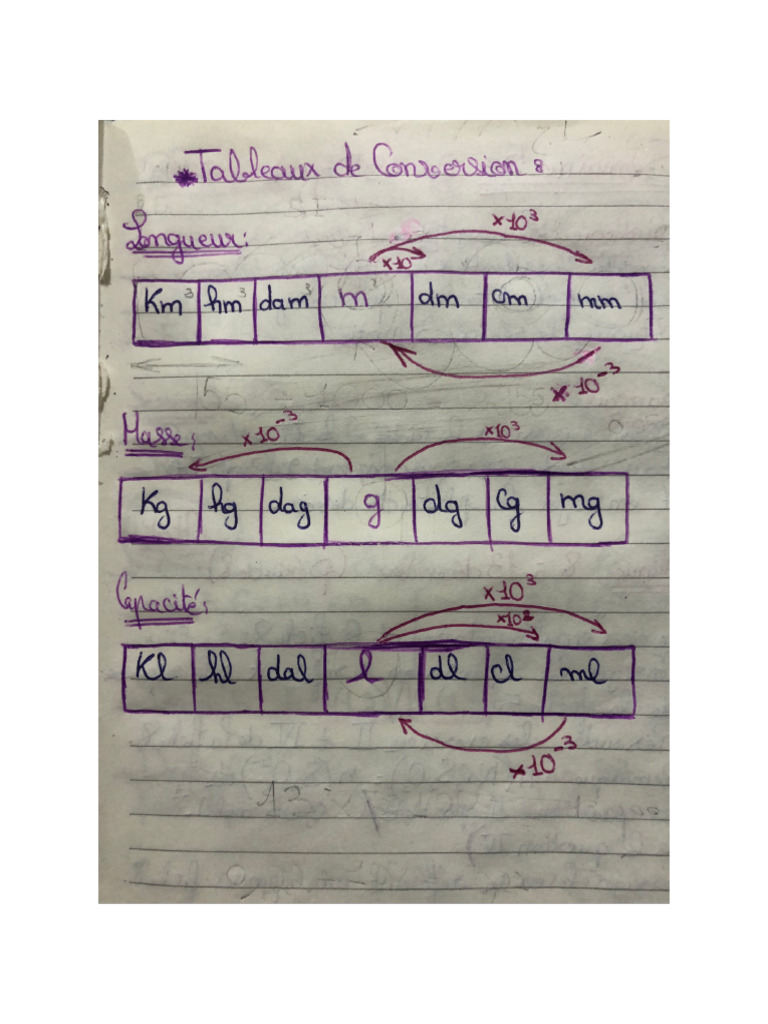 *Tableaux de Conversion :
Longueur :
×10³
×10
Km³ hm³ dam³ m³ dm cm mm
×10⁻³
Masse :
×10⁻³ ×10³
Kg hg dag g dg Cg mg
Capacité :
×10³
×10²
Kl hl dal l dl cl ml
×10⁻³